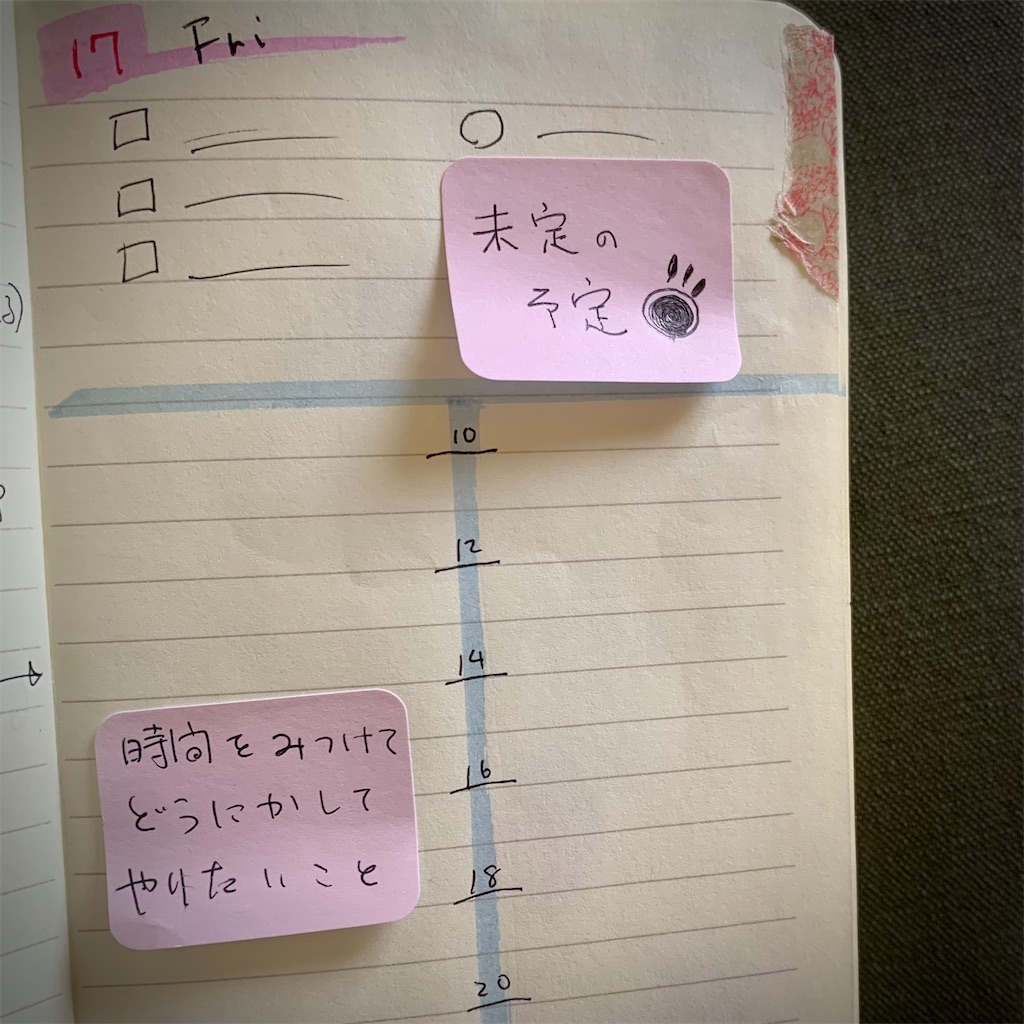 17 Fri
未定の
予定
10
12
14
16
18
20
時間をみつけて
どうにかして
やりたいこと